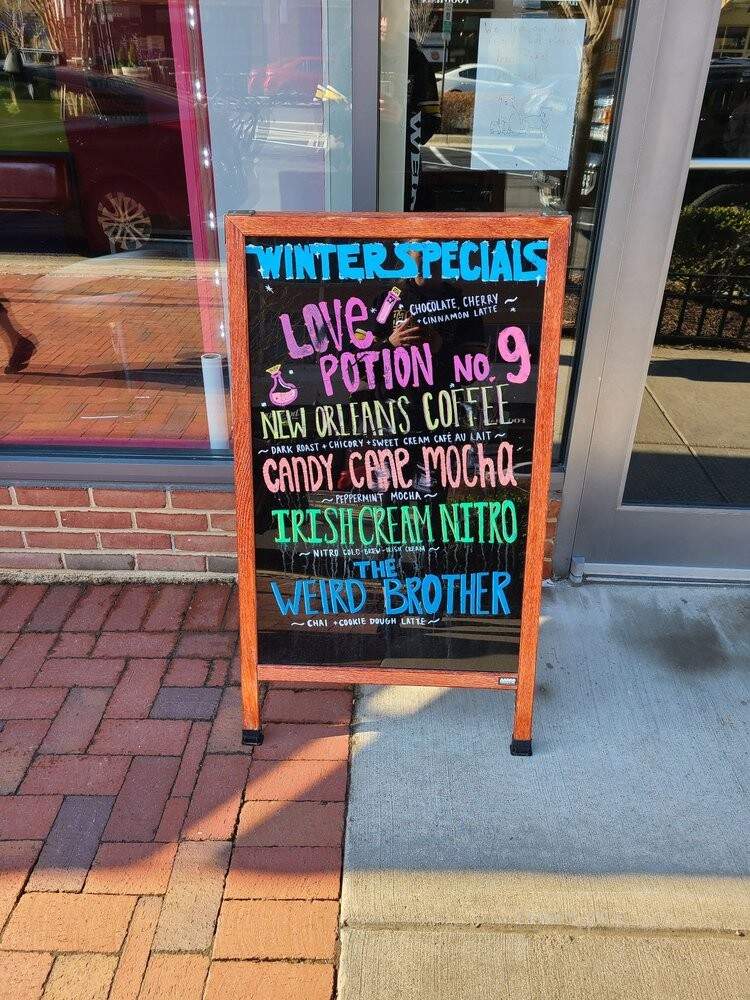 WINTER SPECIALS
LOVE
CHOCOLATE, CHERRY
+ CINNAMON LATTE
POTION NO. 9
NEW ORLEANS COFFEE
~ DARK ROAST + CHICORY + SWEET CREAM CAFÉ AU LAIT ~
CANDY CANE MOCHA
~ PEPPERMINT MOCHA ~
IRISH CREAM NITRO
~ NITRO COLD BREW + IRISH CREAM ~
THE
WEIRD BROTHER
~ CHAI + COOKIE DOUGH LATTE ~